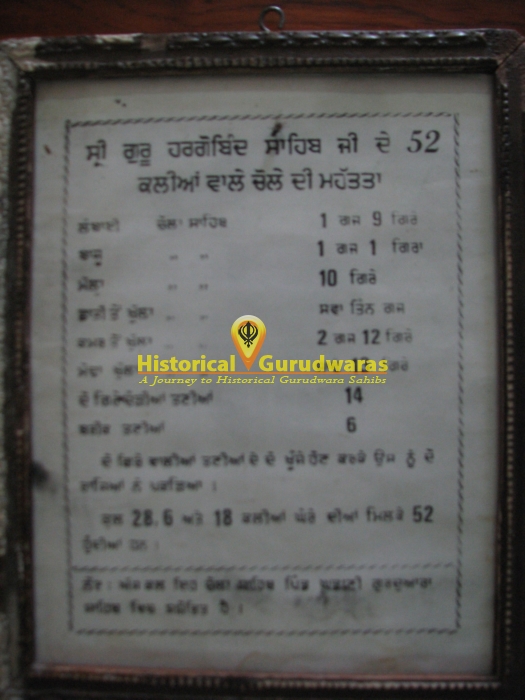 ਸ੍ਰੀ ਗੁਰੂ ਹਰਗੋਬਿੰਦ ਸਾਹਿਬ ਜੀ ਦੇ 52
ਕਲੀਆਂ ਵਾਲੇ ਚੋਲੇ ਦੀ ਮਹੱਤਤਾ
ਲੰਬਾਈ ਚੋਲਾ ਸਾਹਿਬ 1 ਗਜ 9 ਗਿਰੇ
ਬਾਜੂ " " 1 ਗਜ 1 ਗਿਰਾ
" " 10 ਗਿਰੇ
ਛਾਤੀ ਤੋਂ ਖੁੱਲਾ " " ਸਵਾ ਤਿੰਨ ਗਜ
ਕਮਰ ਤੋਂ ਖੁੱਲਾ " 2 ਗਜ 12 ਗਿਰੇ
Historical Gurudwaras
A Journey to Historical Gurudwara Sahibs
ਤਣੀਆਂ 14
ਤਣੀਆਂ 6
ਤਣੀਆਂ ਦੇ ਦੋ ਹੋਣ ਕਰਕੇ ਉਸ ਨੂੰ ਦੋ
ਰਾਜਿਆਂ ਨੇ ਪਕੜਿਆ ।
ਕੁਲ 28, 6 ਅਤੇ 18 ਕਲੀਆਂ ਘੇਰੇ ਦੀਆਂ ਮਿਲਕੇ 52
ਹੁੰਦੀਆਂ ਹਨ ।
ਨੋਟ : ਅੱਜ ਕਲ ਇਹ ਚੋਲਾ ਸਾਹਿਬ ਪਿੰਡ ਘੁਡਾਣੀ ਗੁਰਦੁਆਰਾ
ਸਾਹਿਬ ਵਿਚ ਸੁਸ਼ੋਭਿਤ ਹੈ ।